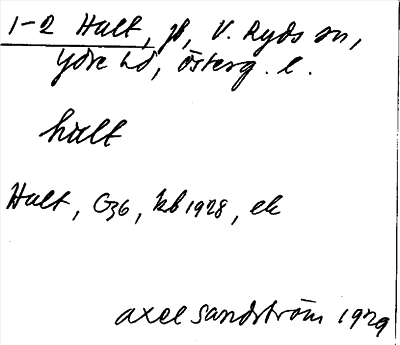 1-2 Hult, gd, V. Ryds sn,
Ydre hd, Österg. l.
hult
Hult, G36, kb 1928, ek
Axel Sandström 1929